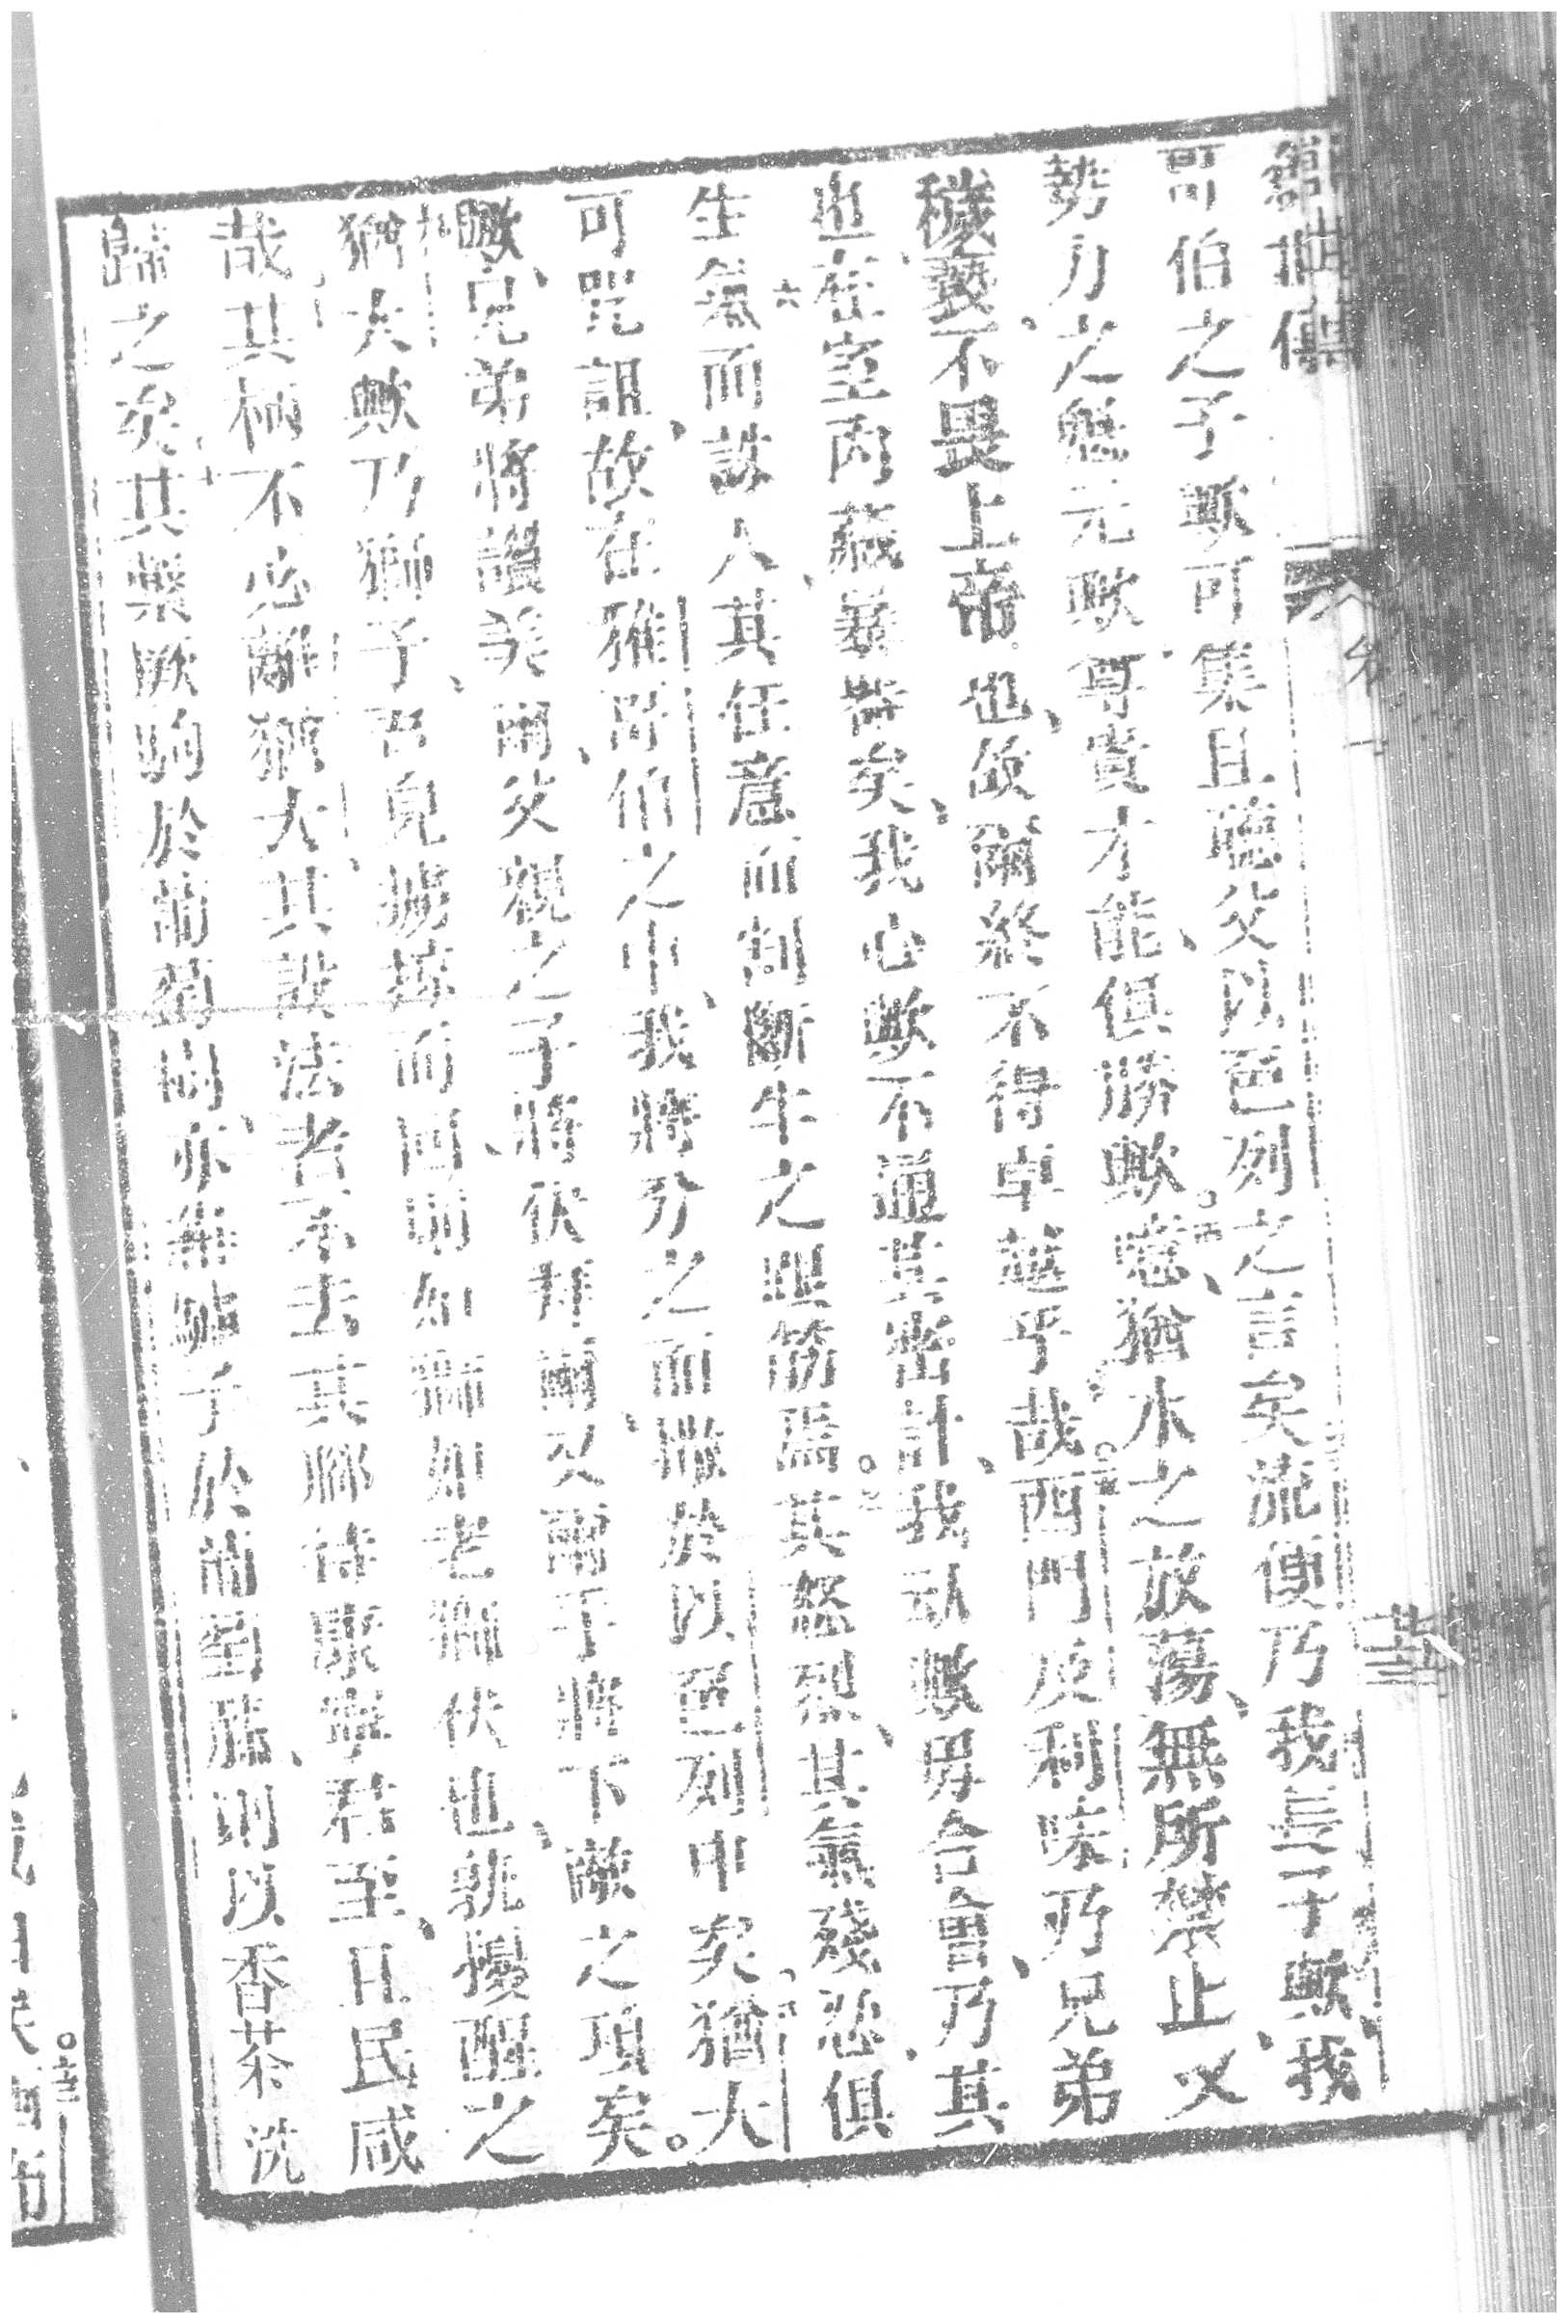 哥伯之子歟可集且聽父以色列之言矣流便乃我長子歟我
勢力之魁元歟尊貴才能俱勝歟惹猶水之放蕩無所禁止又
穢褻不畏上帝也故爾終不得卓越乎哉西門及利味乃兄弟
也在室內藏暴器矣我心歟不通其密計我弘歟毋合會乃其
生氣而誅人其任意而割斷牛之腿筋焉其怒烈其氣殘忍俱
可咒詛故在雅哥伯之中我將分之而撒於以色列中矣猶大
歟兄弟將讚美爾父親之子將伏拜爾又爾手將下敵之項矣
猶大歟乃獅子吾兒擄掠而回則如獅如老獅伏也孰擾醒之
哉其柄不必離猶大其設法者不去其腳待寧君至且民咸
歸之矣其繫厥駒於葡萄樹亦母驢子於葡萄處則以香茶洗